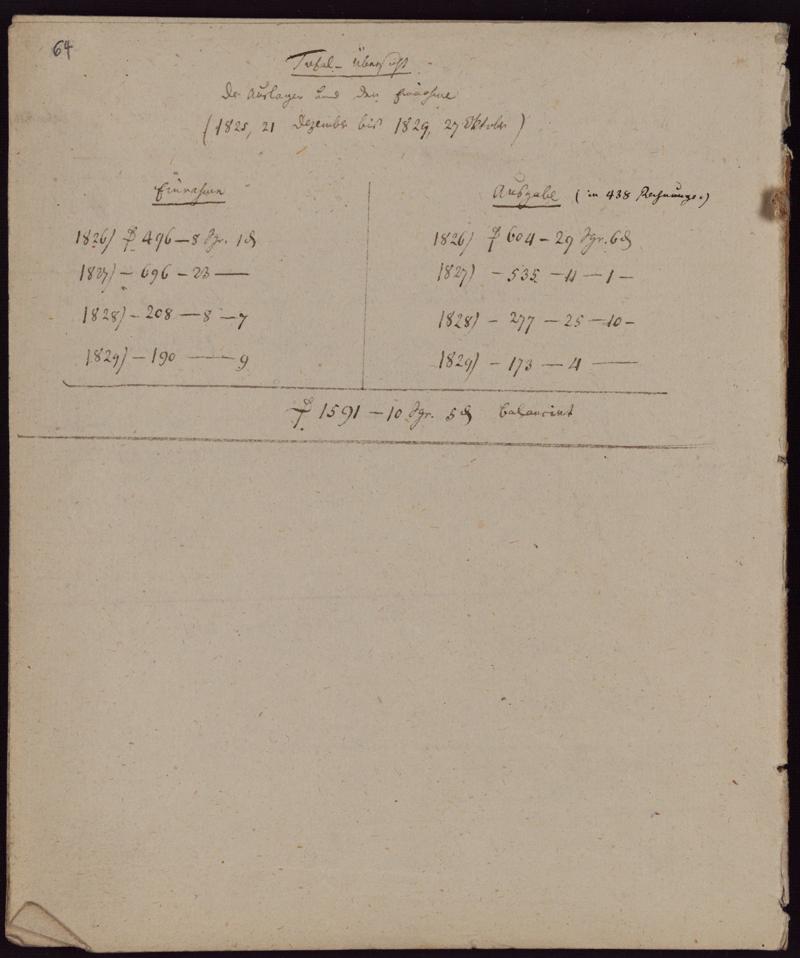 64
Total-Übersicht
der Auslagen und der Einnahme
(1825, 21 Dezember bis 1829, 27 Oktober)
Einnahme
1826) ₰ 496 – 8 Sgr. 1 ₰
1827) – 696 – 23 —
1828) – 208 – 8 – 7
1829) – 190 — 9
Ausgabe (in 438 Rechnungen.)
1826) ₰ 604 – 29 Sgr. 6 ₰
1827) – 535 – 11 – 1 –
1828) – 277 – 25 – 10 –
1829) – 173 – 4 —
₰ 1591 – 10 Sgr. 5 ₰ balancirt